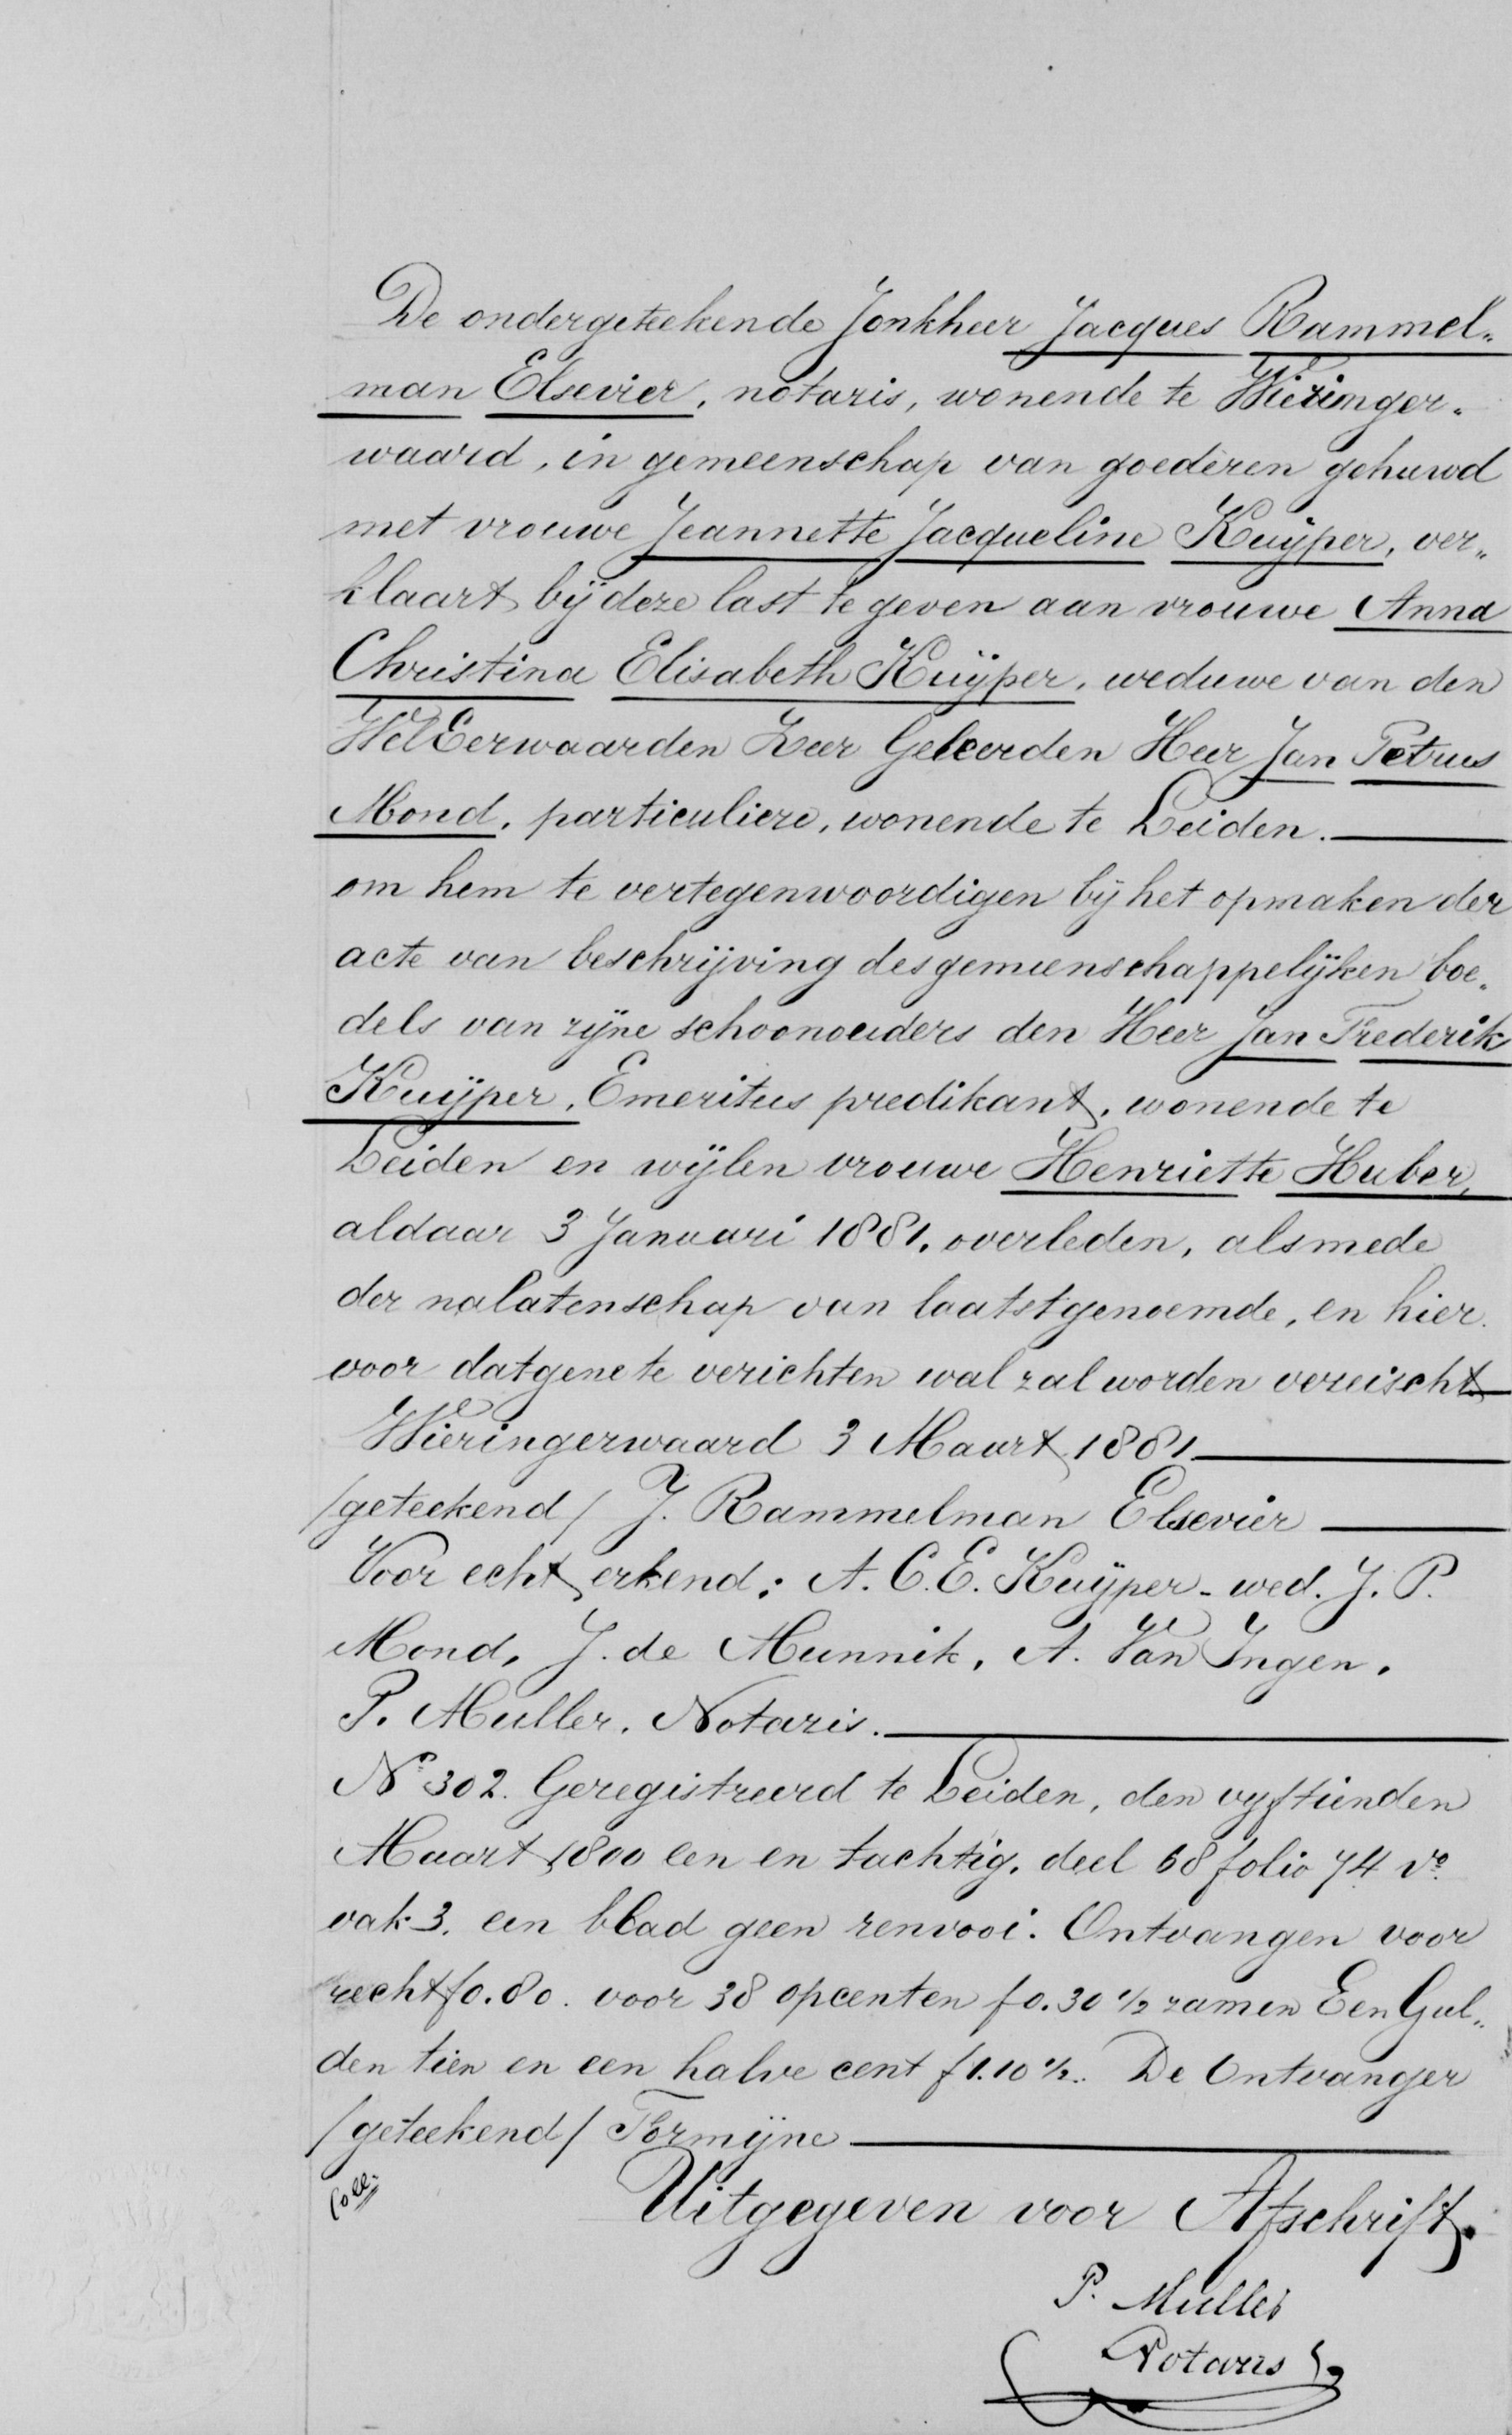 De ondergeteekende Jonkheer Jacques Rammel„
man Elsevier, notaris, wonende te Wieringer„
waard, in gemeenschap van goederen gehuwd
met vrouwe Jeannette Jacqueline Kuijper, ver„
klaart bij deze last te geven aan vrouwe Anna
Christina Elisabeth Kuijper, weduwe van den
WelEerwaarden Zeer Geleerden Heer Jan Petrus
Mond, particuliere, wonende te Leiden.
om hem te vertegenwoordigen bij het opmaken der
acte van beschrijving des gemeenschappelijken boe„
dels van zijne schoonouders den Heer Jan Frederik
Kuijper, Emeritus predikant, wonende te
Leiden en wijlen vrouwe Henriette Huber,
aldaar 3 Januari 1881, overleden, alsmede
der nalatenschap van laatstgenoemde, en hier.
voor datgene te verichten wat zal worden vereischt
Wieringerwaard 3 Maart 1881
/geteekend/ J. Rammelman Elsevier
Voor echt erkend: A. C. E. Kuijper - wed. J. P.
Mond, J. de Munnik, A. Van Ingen.
P. Muller. Notaris.
No 302. Geregistreerd te Leiden, den vyftienden
Maart 1800 een en tachtig, deel 68 folio 74 vo
vak 3, een blad geen renvooi. Ontvangen voor
recht f0.80. voor 38 opcenten f0.30½ zamen Een Gul„
den tien en een halve cent f1.10½. De Ontvanger
/geteekend/ Formijne
Coll:
Uitgegeven voor Afschrift.
P. Muller
Notaris